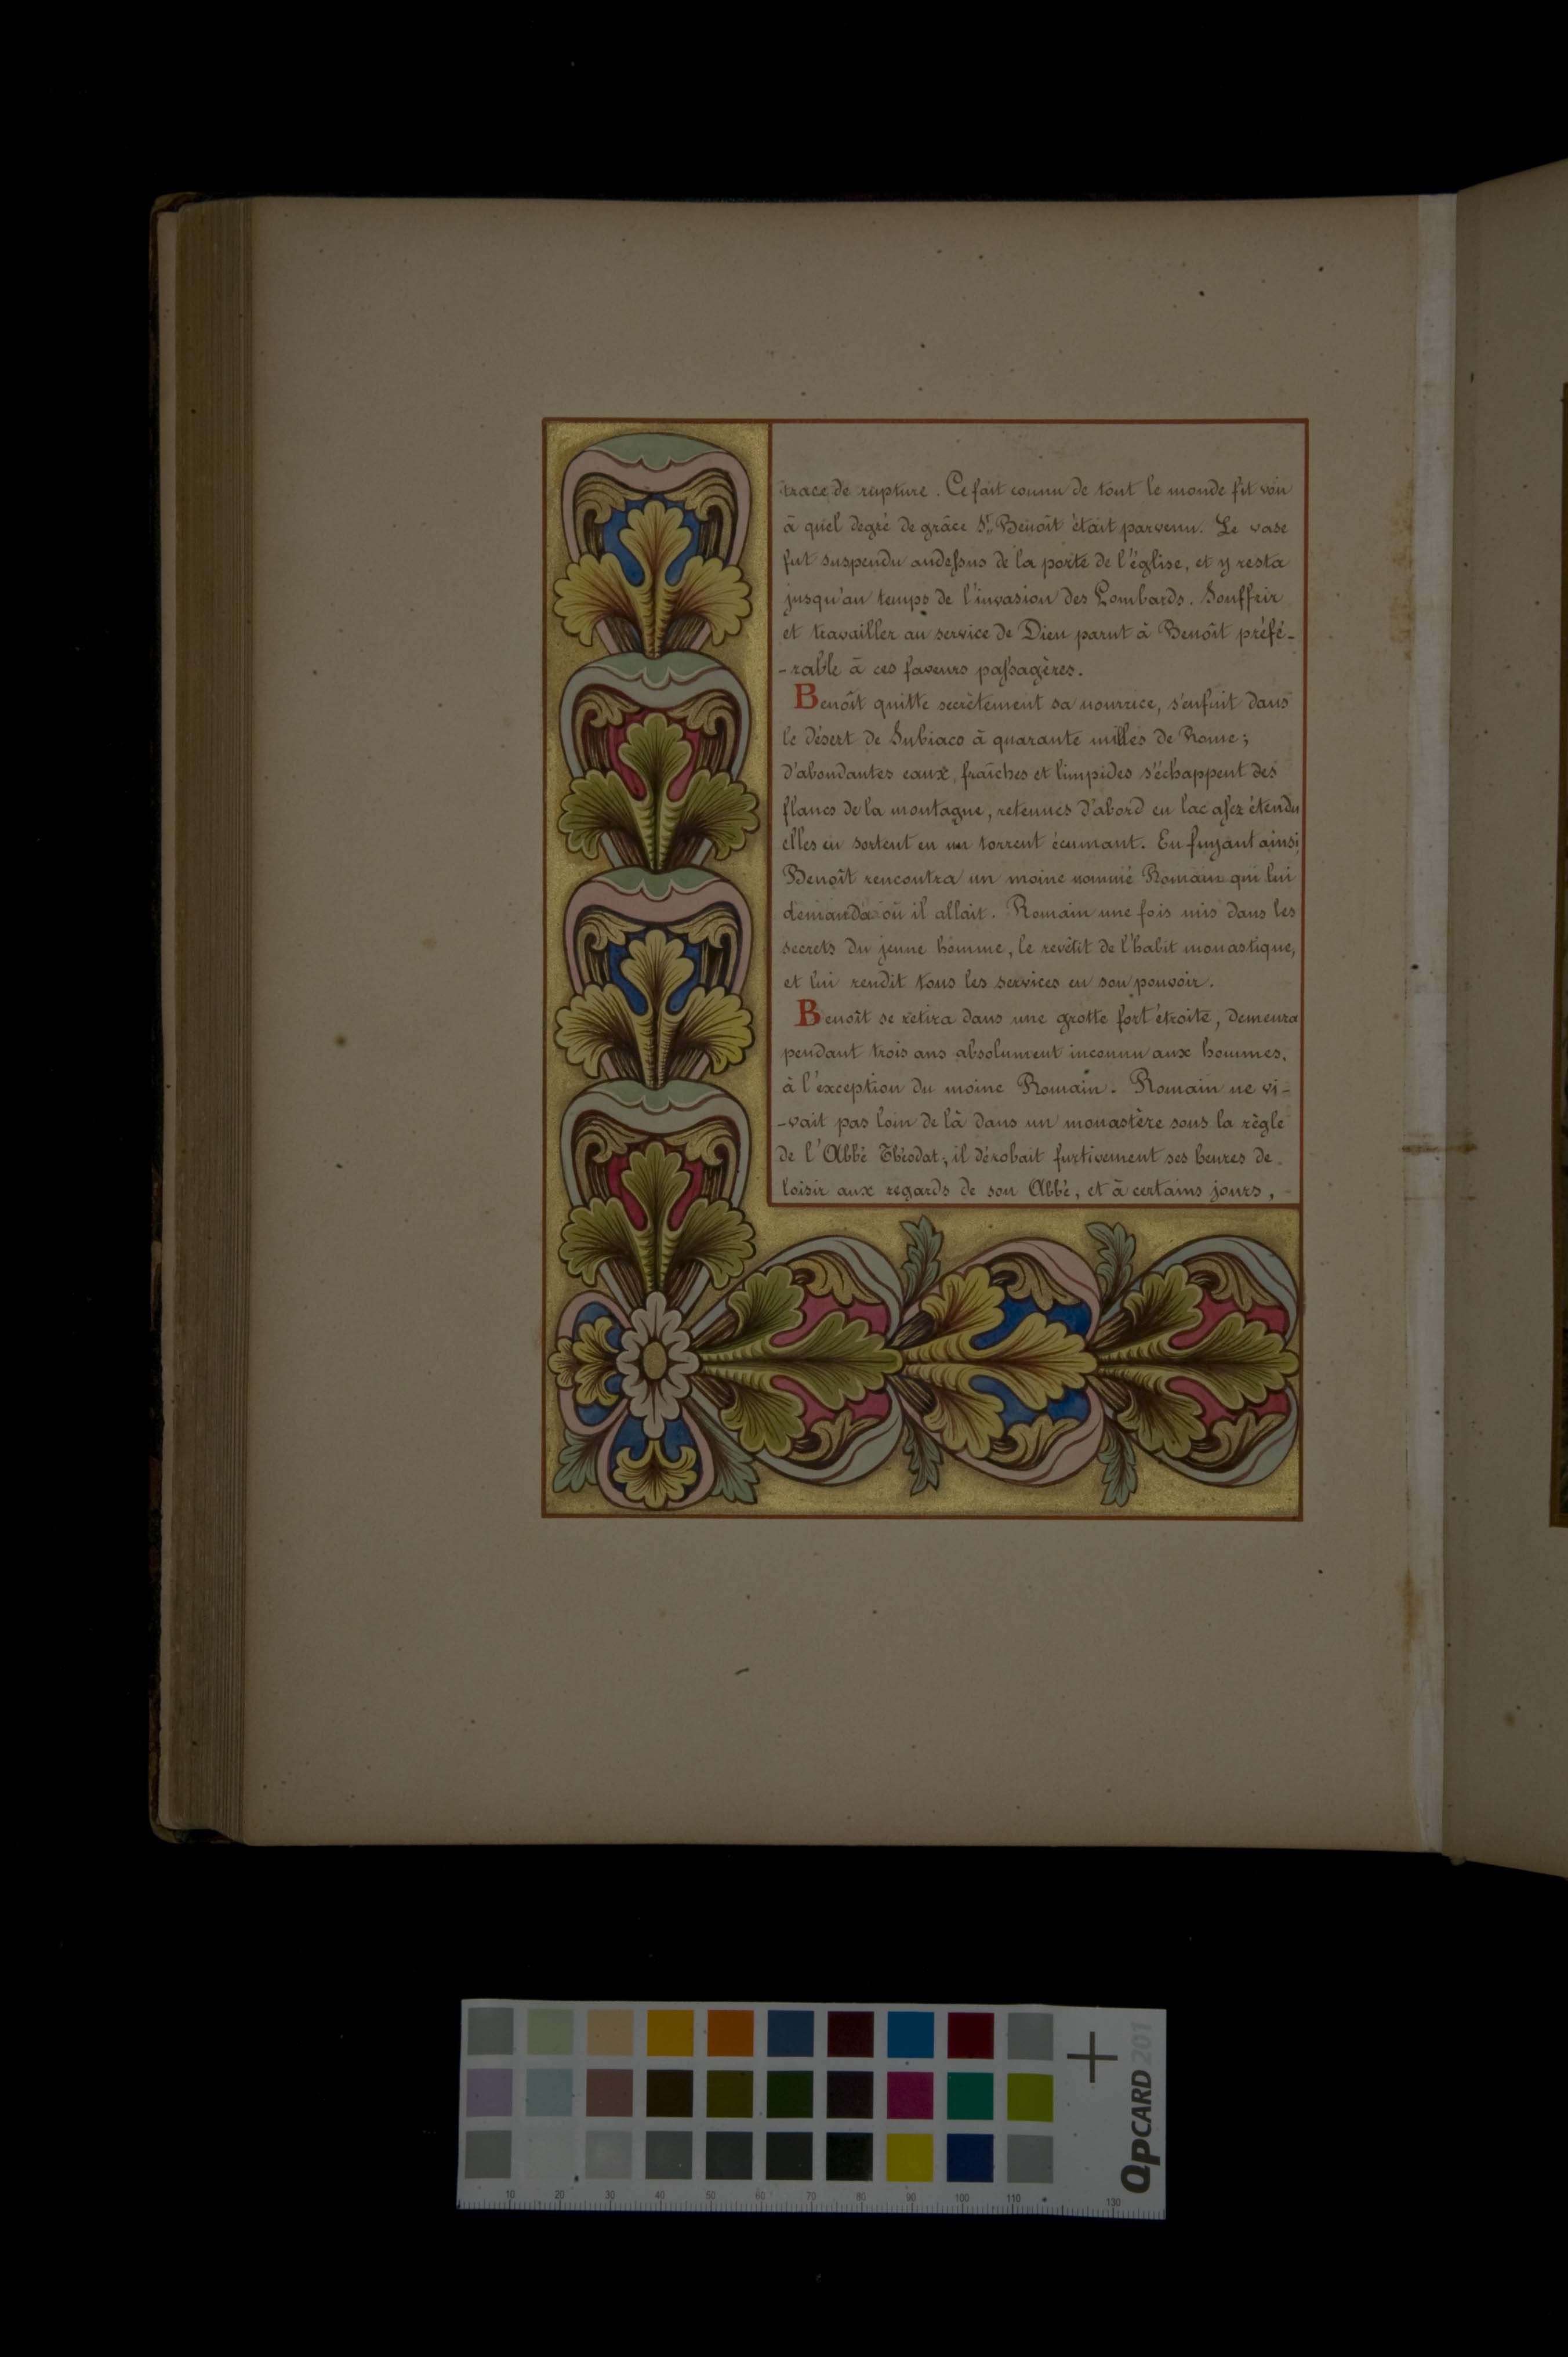 trace de rupture. Ce fait connu de tout le monde fit voir
à quel degré de grâce St. Benoît était parvenu. Le vase
fut suspendu audessus de la porte de l'église, et y resta
jusqu'au temps de l'invasion des Lombards. Souffrir
et travailler au service de Dieu parut à Benoît préfé-
-rable à ces faveurs passagères.
Benoît quitte secrètement sa nourrice, s'enfuit dans
le désert de Subiaco à quarante milles de Rome;
d'abondantes eaux, fraîches et limpides s'échappent des
flancs de la montagne, retenues d'abord en lac assez étendu
elles en sortent en un torrent écumant. En fuyant ainsi
Benoît rencontra un moine nommé Romain qui lui
demanda où il allait. Romain une fois mis dans les
secrets du jeune homme, le revêtit de l'habit monastique,
et lui rendit tous les services en son pouvoir.
Benoît se retira dans une grotte fort étroite, demeura
pendant trois ans absolument inconnu aux hommes,
à l'exception du moine Romain. Romain ne vi-
-vait pas loin de là dans un monastère sous la règle
de l'Abbé Théodat; il dérobait furtivement ses heures de
loisir aux regards de son Abbé, et à certains jours, -
QPCARD 201
10 20 30 40 50 60 70 80 90 100 110 130